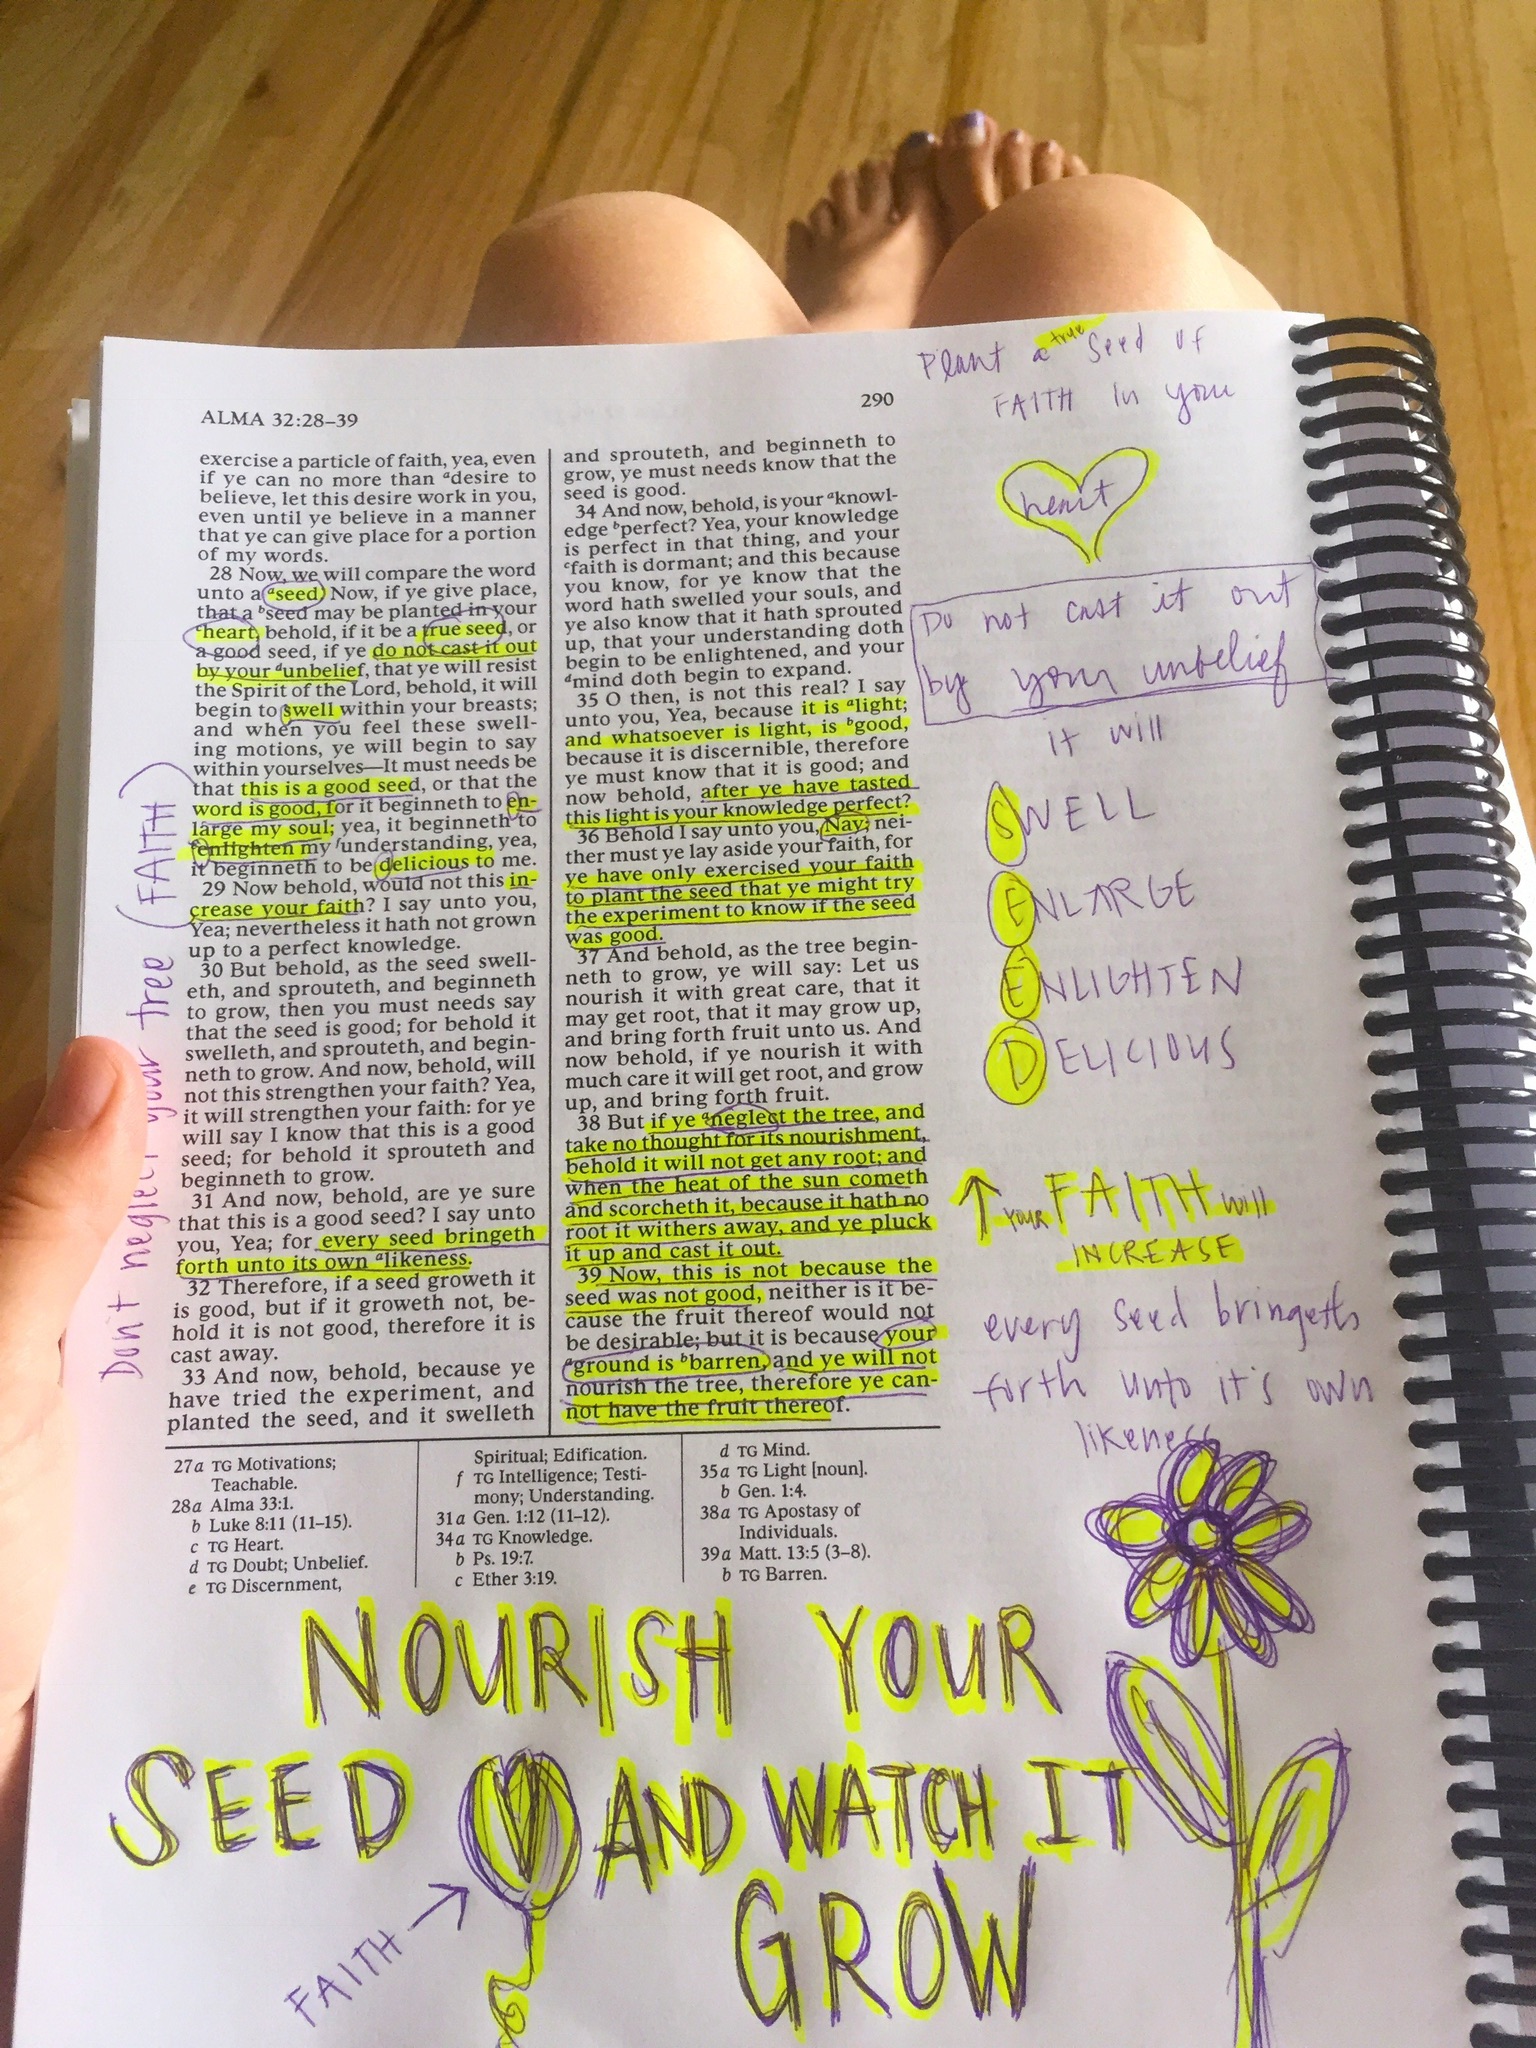 ALMA 32:28–39
290
exercise a particle of faith, yea, even
if ye can no more than adesire to
believe, let this desire work in you,
even until ye believe in a manner
that ye can give place for a portion
of my words.
28 Now, we will compare the word
unto a aseed. Now, if ye give place,
that a bseed may be planted in your
cheart, behold, if it be a true seed, or
a good seed, if ye do not cast it out
by your dunbelief, that ye will resist
the Spirit of the Lord, behold, it will
begin to swell within your breasts;
and when you feel these swell-
ing motions, ye will begin to say
within yourselves—It must needs be
that this is a good seed, or that the
word is good, for it beginneth to en-
large my soul; yea, it beginneth to
eenlighten my funderstanding, yea,
it beginneth to be delicious to me.
29 Now behold, would not this in-
crease your faith? I say unto you,
Yea; nevertheless it hath not grown
up to a perfect knowledge.
30 But behold, as the seed swell-
eth, and sprouteth, and beginneth
to grow, then you must needs say
that the seed is good; for behold it
swelleth, and sprouteth, and begin-
neth to grow. And now, behold, will
not this strengthen your faith? Yea,
it will strengthen your faith: for ye
will say I know that this is a good
seed; for behold it sprouteth and
beginneth to grow.
31 And now, behold, are ye sure
that this is a good seed? I say unto
you, Yea; for every seed bringeth
forth unto its own alikeness.
32 Therefore, if a seed groweth it
is good, but if it groweth not, be-
hold it is not good, therefore it is
cast away.
33 And now, behold, because ye
have tried the experiment, and
planted the seed, and it swelleth
and sprouteth, and beginneth to
grow, ye must needs know that the
seed is good.
34 And now, behold, is your aknowl-
edge bperfect? Yea, your knowledge
is perfect in that thing, and your
cfaith is dormant; and this because
you know, for ye know that the
word hath swelled your souls, and
ye also know that it hath sprouted
up, that your understanding doth
begin to be enlightened, and your
dmind doth begin to expand.
35 O then, is not this real? I say
unto you, Yea, because it is alight;
and whatsoever is light, is bgood,
because it is discernible, therefore
ye must know that it is good; and
now behold, after ye have tasted
this light is your knowledge perfect?
36 Behold I say unto you, Nay; nei-
ther must ye lay aside your faith, for
ye have only exercised your faith
to plant the seed that ye might try
the experiment to know if the seed
was good.
37 And behold, as the tree begin-
neth to grow, ye will say: Let us
nourish it with great care, that it
may get root, that it may grow up,
and bring forth fruit unto us. And
now behold, if ye nourish it with
much care it will get root, and grow
up, and bring forth fruit.
38 But if ye aneglect the tree, and
take no thought for its nourishment,
behold it will not get any root; and
when the heat of the sun cometh
and scorcheth it, because it hath no
root it withers away, and ye pluck
it up and cast it out.
39 Now, this is not because the
seed was not good, neither is it be-
cause the fruit thereof would not
be desirable; but it is because your
aground is bbarren, and ye will not
nourish the tree, therefore ye can-
not have the fruit thereof.
27a TG Motivations;
Teachable.
28a Alma 33:1.
b Luke 8:11 (11–15).
c TG Heart.
d TG Doubt; Unbelief.
e TG Discernment,
Spiritual; Edification.
f TG Intelligence; Testi-
mony; Understanding.
31a Gen. 1:12 (11–12).
34a TG Knowledge.
b Ps. 19:7.
c Ether 3:19.
d TG Mind.
35a TG Light [noun].
b Gen. 1:4.
38a TG Apostasy of
Individuals.
39a Matt. 13:5 (3–8).
b TG Barren.
Don't neglect your tree (FAITH)
Plant a true seed of
FAITH in your
heart
Do not cast it out
by your unbelief
it will
SWELL
ENLARGE
ENLIGHTEN
DELICIOUS
↑ your FAITH will
INCREASE
every seed bringeth
forth unto it's own
likeness
NOURISH YOUR
SEED AND WATCH IT
GROW
FAITH